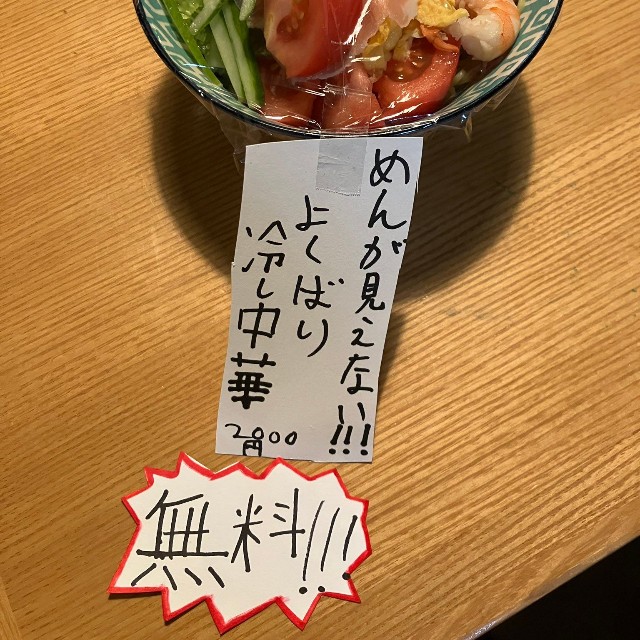 めんが見えない!!!
よくばり
冷し中華
2000
円
無料!!!